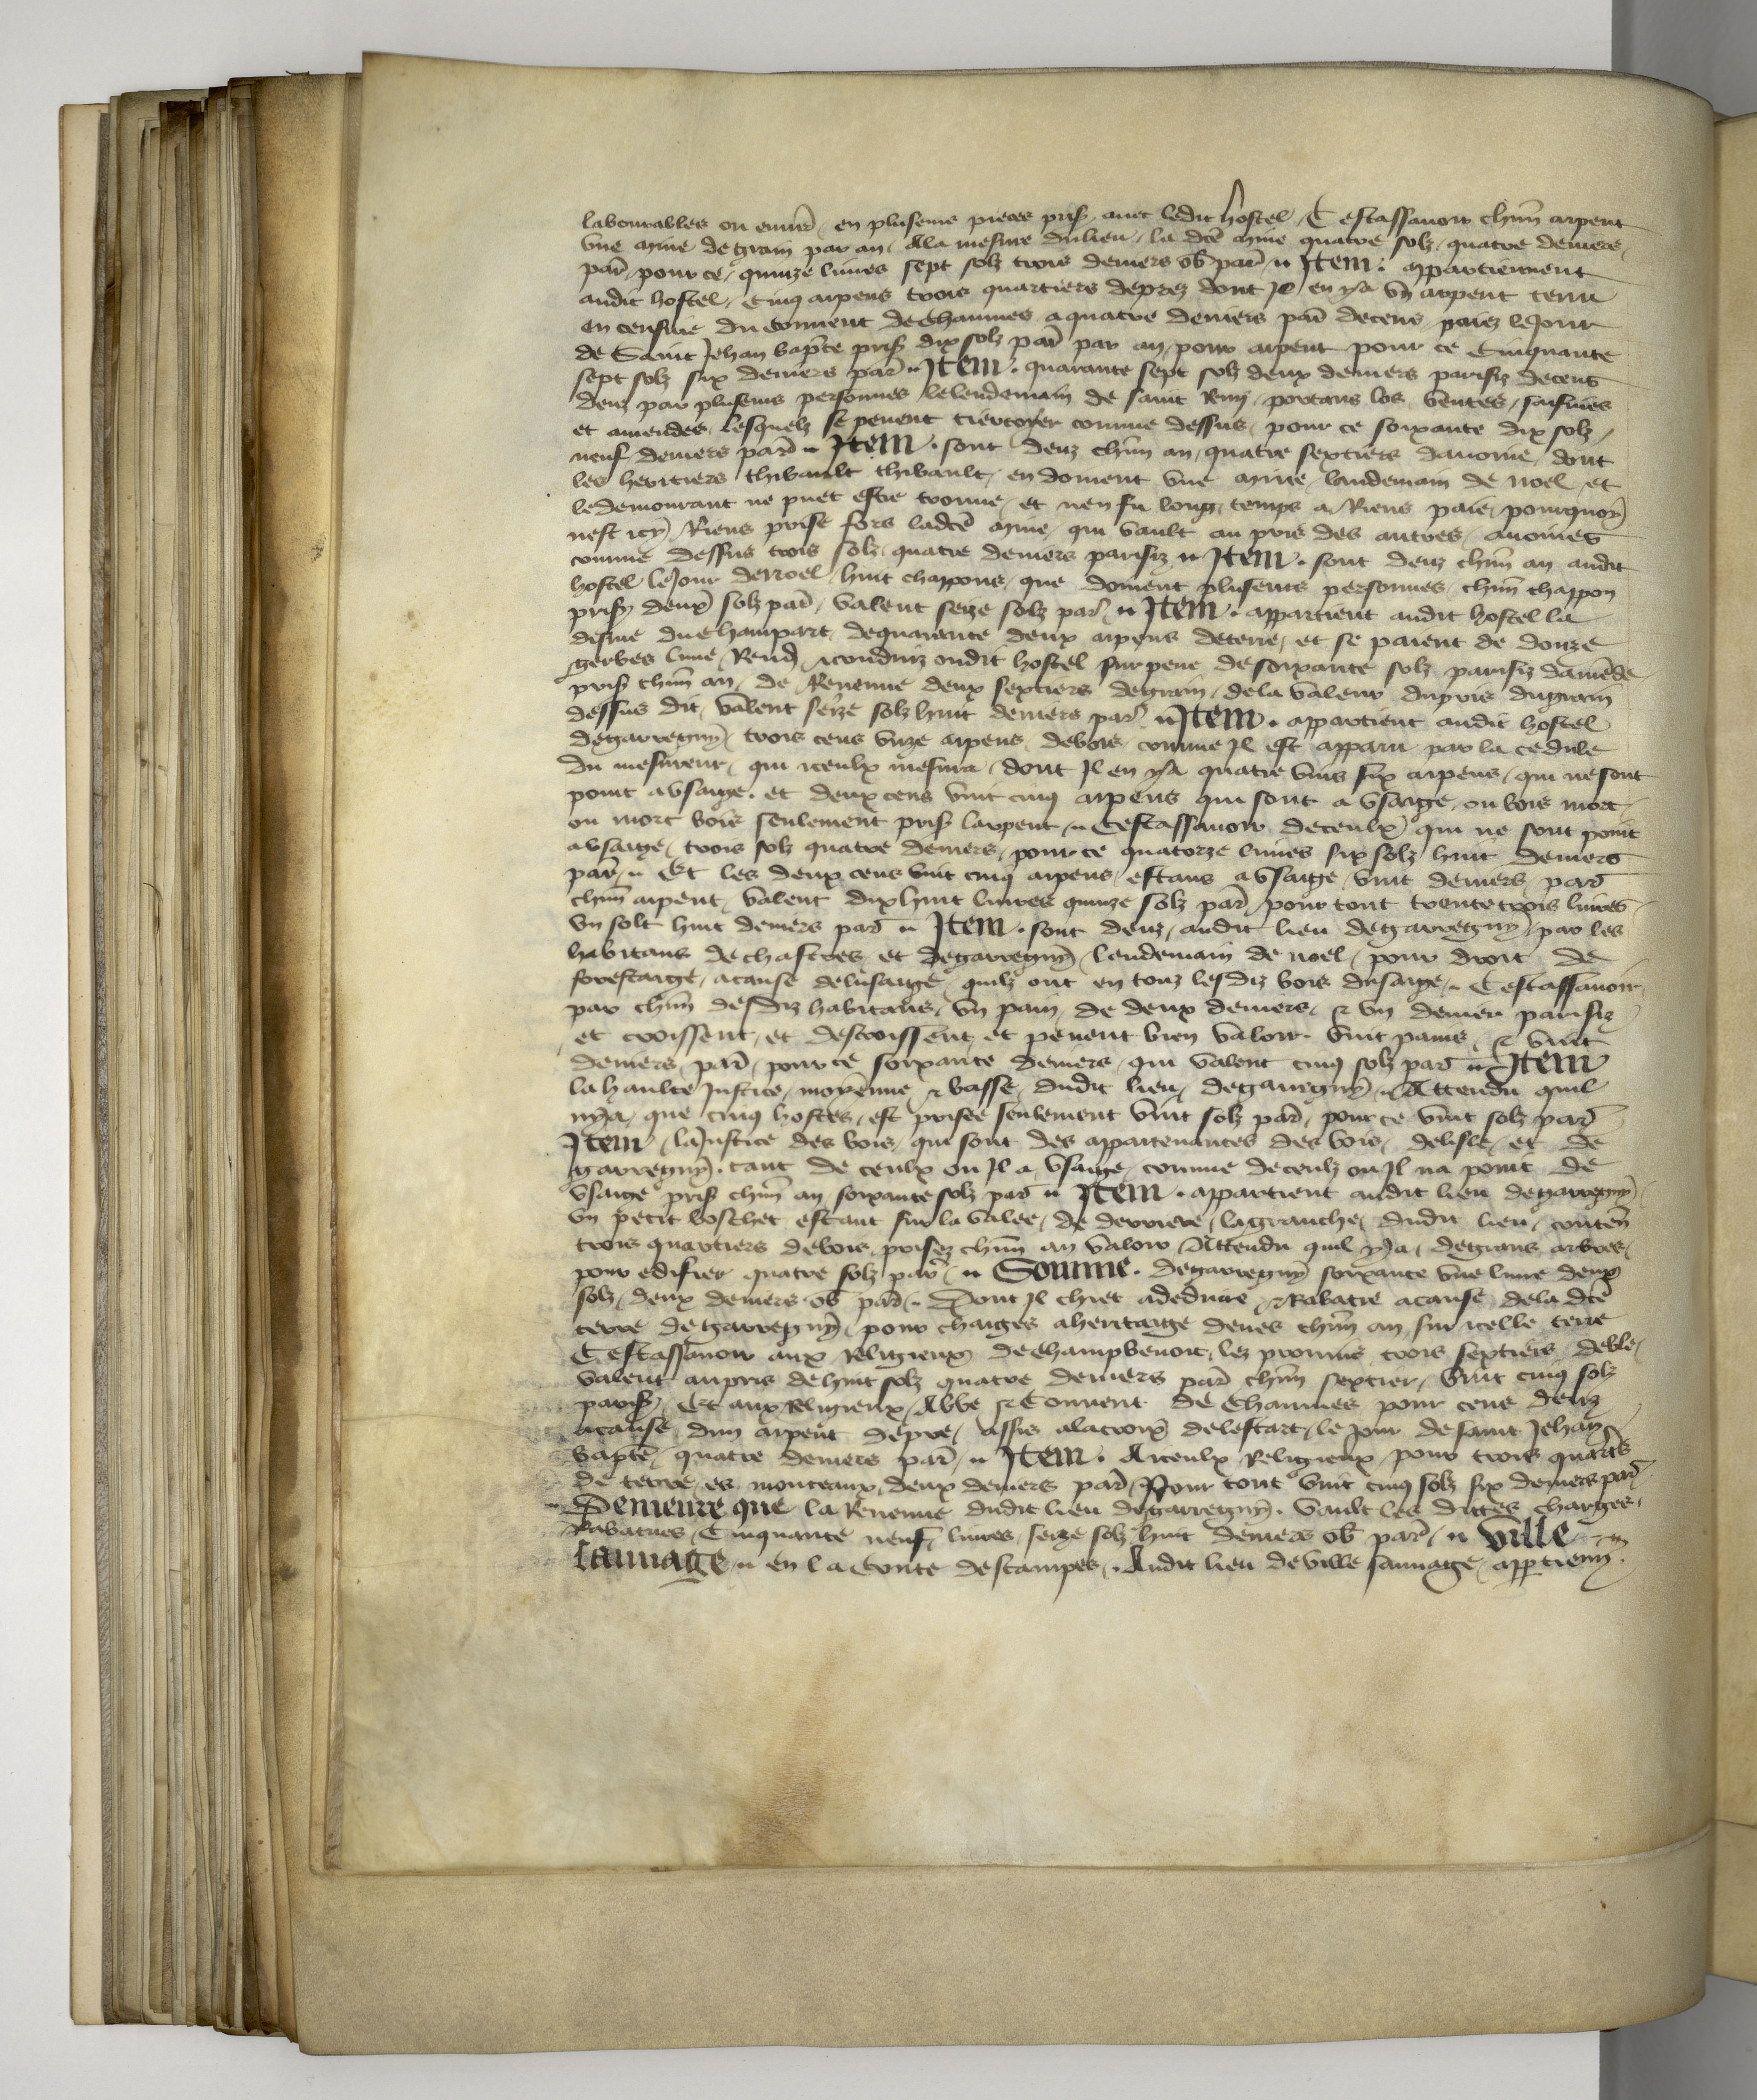 labourables ou enuirõ / en pluseurs pieces pris auec ledit hostel / Cestassauoir chũn arpent
vne mine de grain par an / Ala mesure dulieu / la dcẽ mine quatre solz / quatre deniers /
par̃ / pour ce / quinze liures sept solz trois deniers ob par̃ // Item . appartiennent
audit hostel / Cinq arpens trois quartiers deprez dont Il en ya vn arpent tenu
en censiue du conuent dechaumes a quatre deniers par̃ decens paiez leJour
de Saint Jehan bapt̃e pris dix solz par̃ par an pour arpent pour ce Cinquante
sept solz six deniers par̃ // Item . quarante sept solz deux deniers parisis decens
deuz par pluseurs personnes lelendemain de saint Remy / portans los ventes / saisines
et amendes / lesquelz se peuent tiercoyer comme dessus / pour ce soixante dix solz /
neuf deniers par̃ // Item . sont deuz chũn an / quatre sextiers dauoine / dont
les heritiers thibault thibault / en doiuent vne mine / landemain de noel / et
ledemourant ne puet estre trouue / et nen fu long temps a Riens paie / pourquoy
nest icy Riens prise fors ladcẽ mine / qui vault au pris des autres auoines
comme dessus trois solz quatre deniers parisis // Item . sont deuz chũn an audit
hostel leJour deNoel / huit chappons / que doiuent pluseurs personnes / chũn chappon
prisẽ deux solz par̃ / valent seize solz par̃ // Item . appartient audit hostel la
disme duchampart / dequarante deux arpens deterre / et se paient de douze
gerbes lune / Rendꝰ & conduiz oudit hostel sur pene desoixante solz parisis damẽde
pris chũn an / de Reuenue deux sextiers degrain / dela valeur dupris dugrain
dessus dit / valent seize solz huit deniers par̃ // Item . appartient audit hostel
degarregny / trois cens vnze arpens debois / comme Il est apparu par la cedule
du mesureur / qui iceulx mesura / dont Il en ya quatre vins six arpens / qui nesont
point avsaige . et deux cens vint cinq arpens qui sont a vsaige / ou bois mort
ou mort bois seulement pris larpent // Cestassauoir deceulx qui ne sont point
avsaige / trois solz quatre deniers / pour ce quatorze liures six solz huit deniers
par̃ // Et les deux cens vint cinq arpens / estans avsaige / vint deniers par̃
chũn arpent / valent dixhuit liures quinze solz par̃ / pour tout trentetrois liures
vn solt huit deniers par̃ // Item . sont deuz / audit lieu degarregny par les
habitans dechastres et degarregny / lendemain de noel / pour droit de
forestaige / acause delusaige / quilz ont en touz lesdiz bois dusaige // Cestassauoir
par chũn desdiz habitans / vn pain / de deux deniers / & vn denier parisis
et croissent / et descroissent et peuent bien valoir . vint pains / & vint
deniers par̃ / pour ce soixante deniers / qui valent cinq solz par̃ // Item
lahaulte Justice / moyenne & basse / dudit lieu / degarregny / Attendu quil
nya / que cinq hostes / est prisee seulement vint solz par̃ / pour ce vint solz par̃
Item / laJustice des bois / qui sont des appartenances des bois / delisle / et de
garregny . tant de ceulx ou Il a vsaige / comme deceulz ou Il na point de
vsaige pris chũn an soixante solz par̃ // Item . appartient audit lieu degarregny
vn petit boschet / estant sur la valee / de derriere / lagranche / dudit lieu / conteñ
trois quartiers debois / prisez chũn an valoir / Attendu quil ya / degrans arbres /
pour edifier quatre solz par̃ // Somme . degarregny soixante vne liure deux
solz / deux deniers ob par̃ // Dont Il chiet adeduire & Rabatre acause dela dcẽ
terre degarregny / pour charges aheritaige deues chũn an sur icelle terre
Cestassauoir aux Religieux dechampbenoit / lez prouins trois sextiers deble /
valent aupris dehuit solz quatre deniers par̃ chũn sextier / vint cinq solz
parisis / Et aux Religieux / Abbe & Conuent de Chaumes pour cens deuz
acause dun arpent depre / assis alacroix delestart / le jour desaint Jehan
bapt̃e / quatre deniers par̃ // Item . A iceulx Religieux / pour trois quart̃s
de terre / es monceaux / deux deniers par̃ / Pour tout vint cinq solz six deniers par̃
Demeure que la Reuenue dudit lieu degarregny . vault les dictes charges /
Rabatues / Cinquante neuf liures / seize solz huit deniers ob par̃ // Ville
sauuage // en la Conte destampes / Audit lieu deville sauuage / apptienñ .